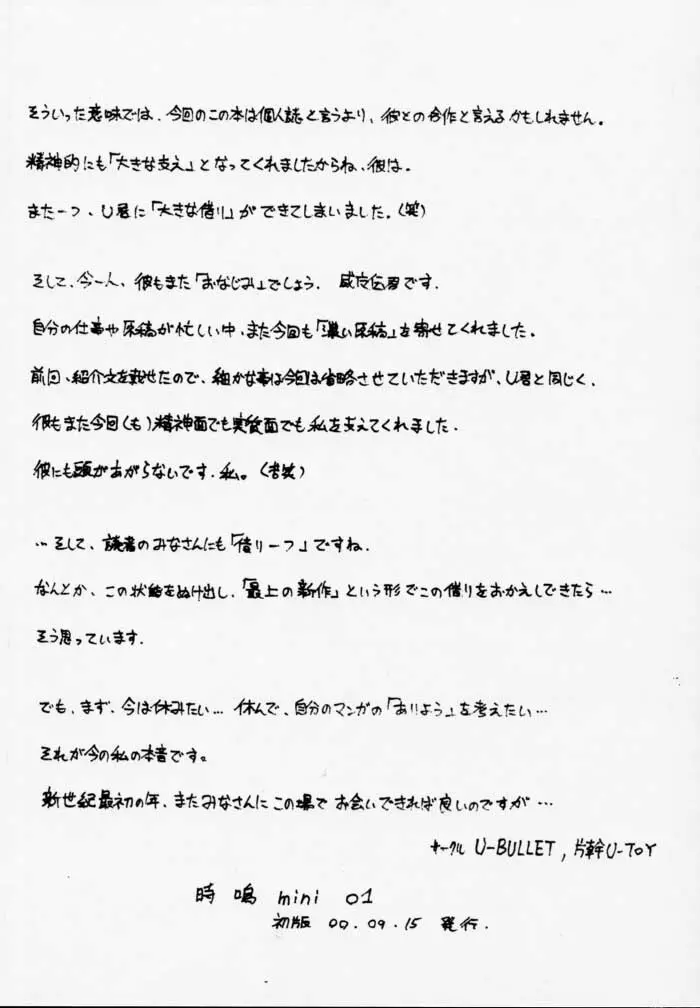 そういった意味では、今回のこの本は個人誌と言うより、彼との合作と言えるかもしれません。
精神的にも「大きな支え」となってくれましたからね、彼は。
また一つ、U君に「大きな借り」ができてしまいました。(笑)
そして、今一人、彼もまた「おなじみ」でしょう。 君です.
自分の仕事や原稿が忙しい中、また今回も「濃い原稿」を寄せてくれました。
前回、紹介文を載せたので、細かな事は今回は省略させていただきますが、U君と同じく、
彼もまた今回(も)精神面でも実質面でも私を支えてくれました.
彼にも頭があがらないです.私。(苦笑)
…そして、読者のみなさんにも「借り一つ」ですね.
なんとか、この状態をぬけ出し、「最上の新作」という形でこの借りをおかえしできたら…
そう思っています.
でも、まず、今は休みたい… 休んで、自分のマンガの「ありよう」を考えたい…
それが今の私の本音です。
新世紀最初の年、またみなさんにこの場で お会いできれば良いのですが…
サークル U-BULLET, 片幹U-TOY
時鳴 mini 01
初版 00.09.15 発行.